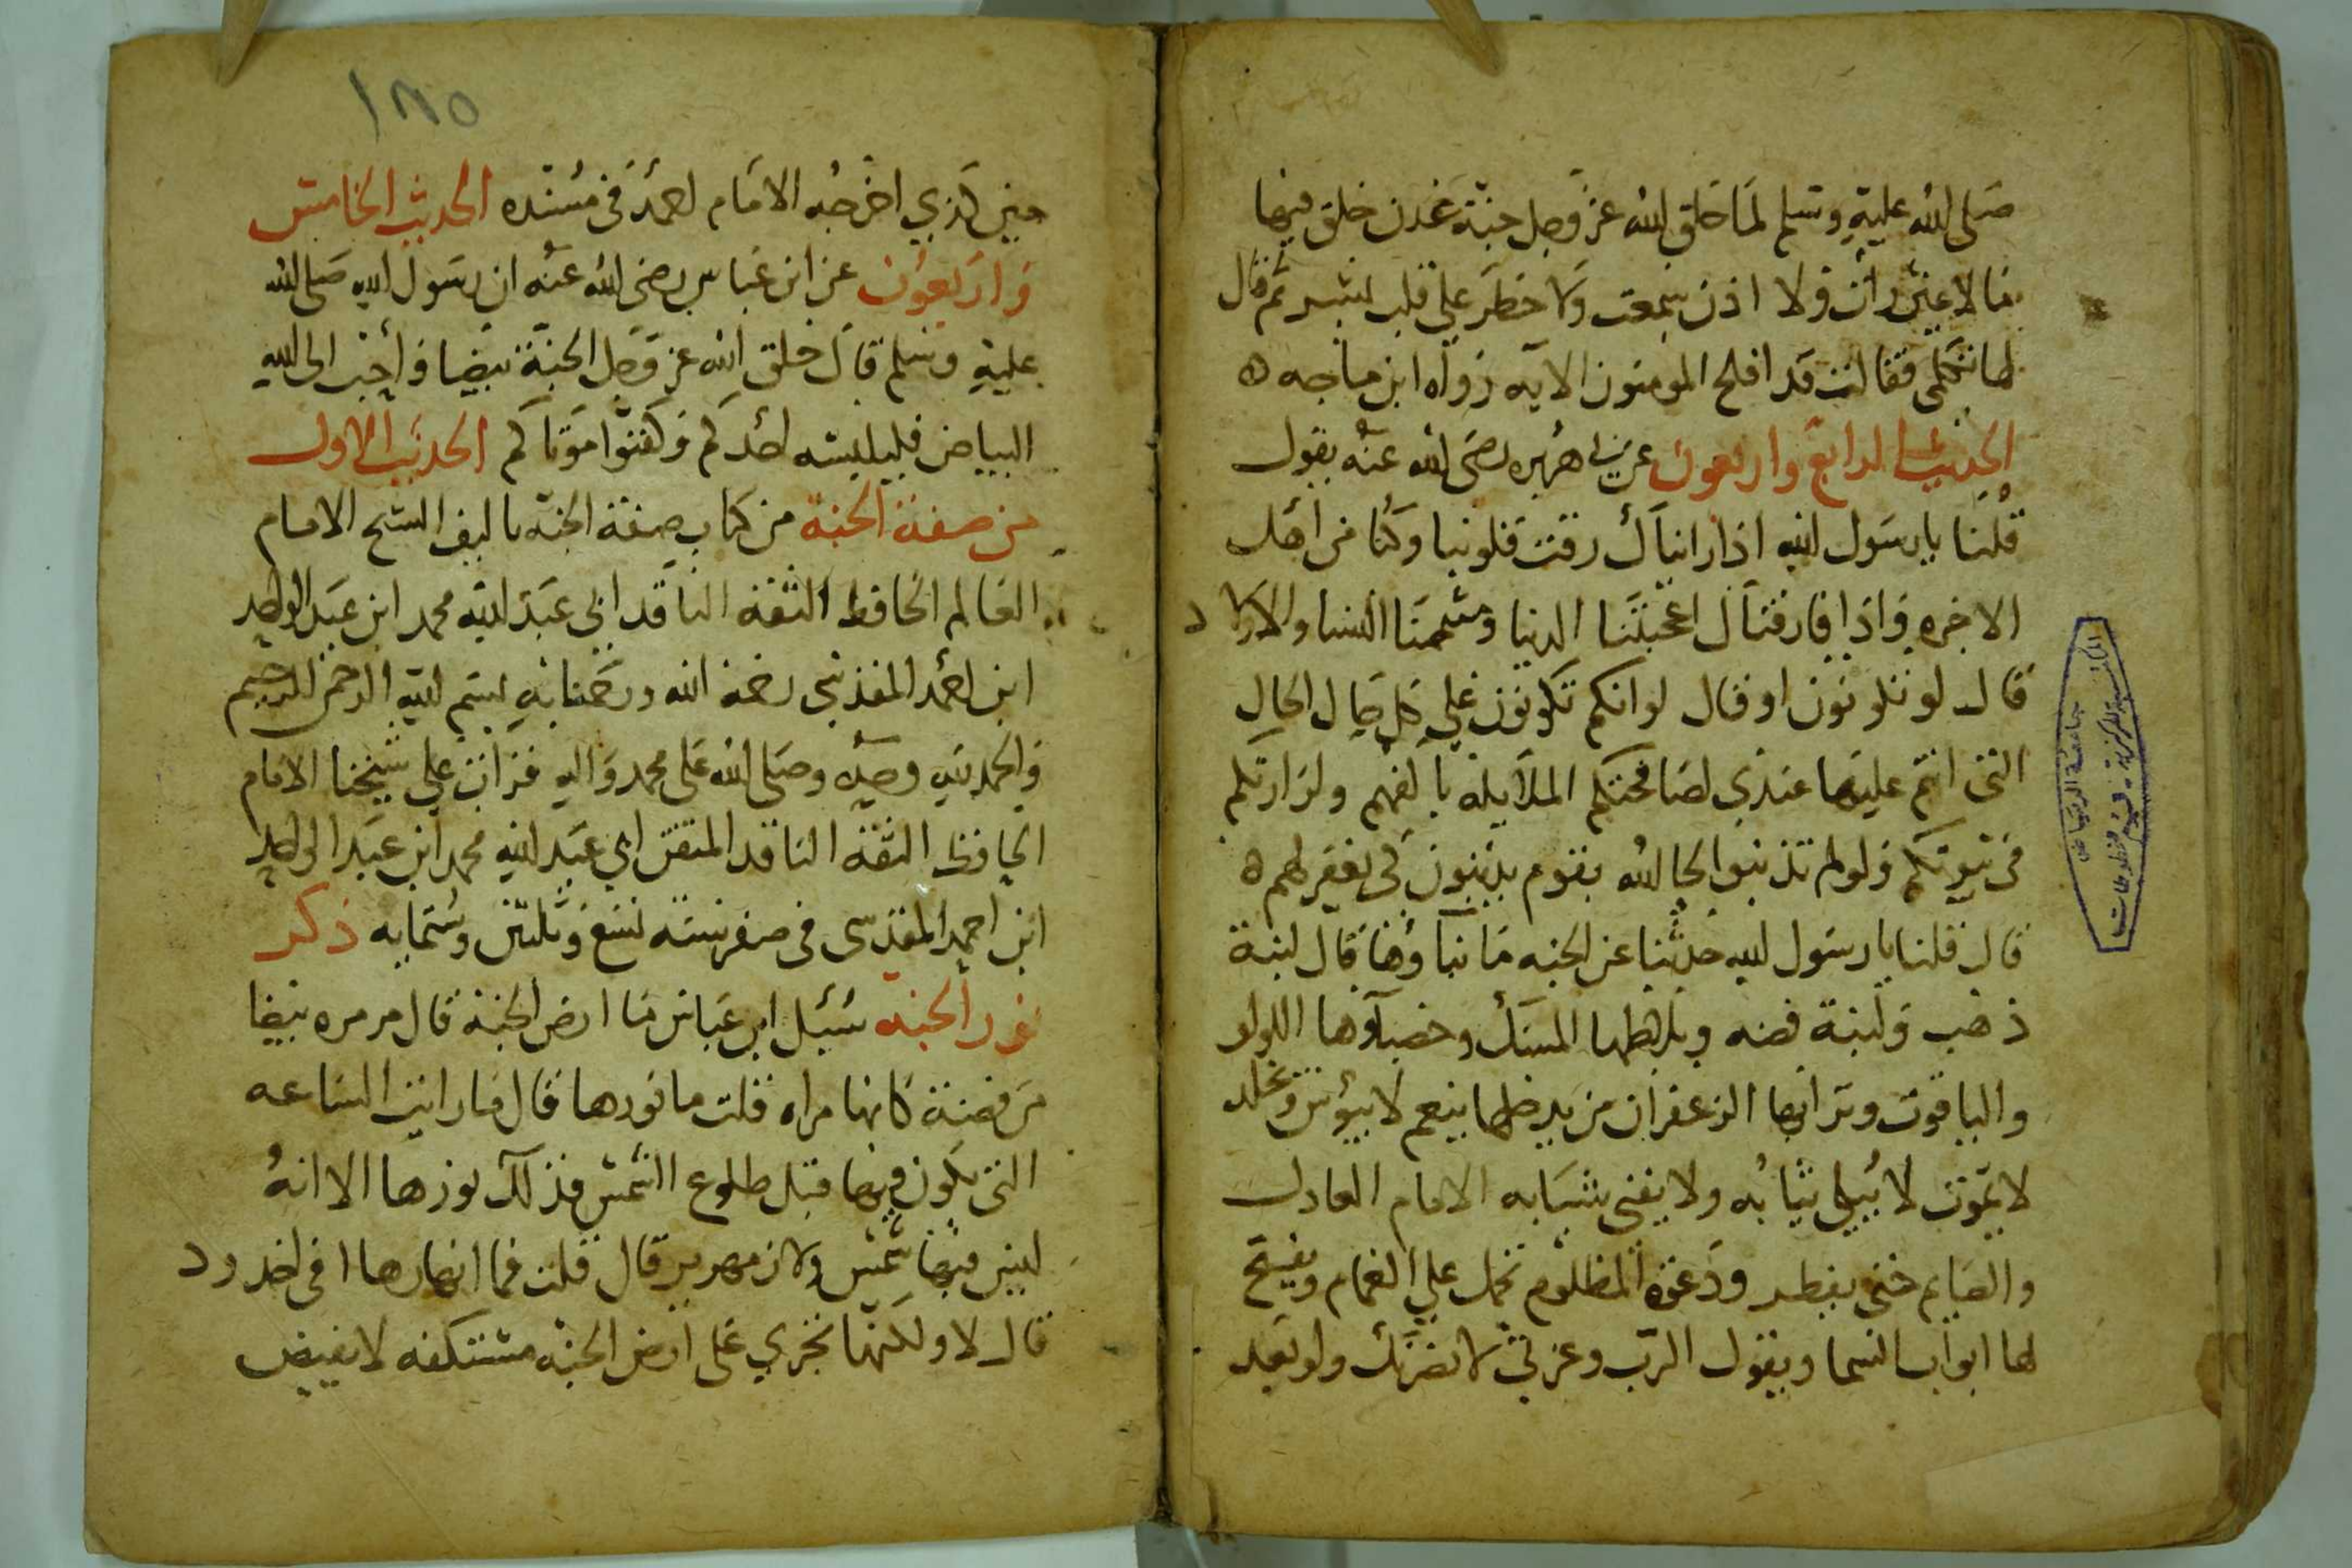 صلى الله عليه وسلم لما خلق الله عز وجل جنة عدن خلق فيها
مالا عين رات ولا اذن سمعت ولا خطر على قلب بشر ثم قال
لها تكلمي فقالت قد افلح المومنون الايه رواه ابن ماجه ه
الحديث الرابع واربعون عن ابي هريره رضى الله عنه يقول
قلنا يا رسول الله اذا رايناك رقت قلوبنا وكنا من اهل
الاخره واذا فارقناك اعجبتنا الدنيا وشممنا النسا والاولاد
قال لو تكونون او قال لو انكم تكونون على كل حال الحال
التى انتم عليها عندي لصافحتكم الملايكه باكفهم ولزارتكم
فى بيوتكم ولو لم تذنبوا لجا الله بقوم يذنبون كى يغفر لهم ه
قال قلنا يا رسول الله حدثنا عن الجنه ما بناوها قال لبنة
ذهب ولبنة فضه وملاطها المسك وحصباوها اللولو
والياقوت وترابها الزعفران من يدخلها ينعم لا يبوس ويخلد
لا يموت لا تبلى ثيابه ولا يفنى شبابه الامام العادل
والصايم حتى يفطر ودعوة المظلوم تحمل على الغمام ويفتح
لها ابواب السما ويقول الرب وعزتي لانصرنك ولو بعد
١٨٥
حين كذي اخرجه الامام احمد فى مسنده الحديث الخامس
واربعون عن ابن عباس رضى الله عنه ان رسول الله صلى الله
عليه وسلم قال خلق الله عز وجل الجنة بيضا واحب الى الله
البياض فليلبسه احدكم وكفنوا موتاكم الحديث الاول
من صفة الجنة من كتاب صفة الجنه تاليف الشيخ الامام
العالم الحافظ الثقه الناقد ابى عبد الله محمد ابن عبد الواحد
ابن احمد المقدسي رحمة الله ورحمنا به بسم الله الرحمن الرحيم
والحمد لله وحده وصلى الله على محمد واله قرات على شيخنا الامام
الحافظ الثقة الناقد المتقن ابي عبد الله محمد ابن عبد الواحد
ابن احمد المقدسى فى صفر سنه تسع وثلثين وستمايه ذكر
نور الجنة سئيل ابن عباس ما ارض الجنة قال مرمره بيضا
من فضة كانها مراه قلت ما نورها قال ما رايت الساعه
التى يكون فيها قبل طلوع الشمس فذلك نورها الا انه
ليس فيها شمس ولا زمهرير قال قلت فما انهارها افى اخدود
قال لا ولكنها تجري على ارض الجنه مستكفه لا يفيض
جامعة الرياض